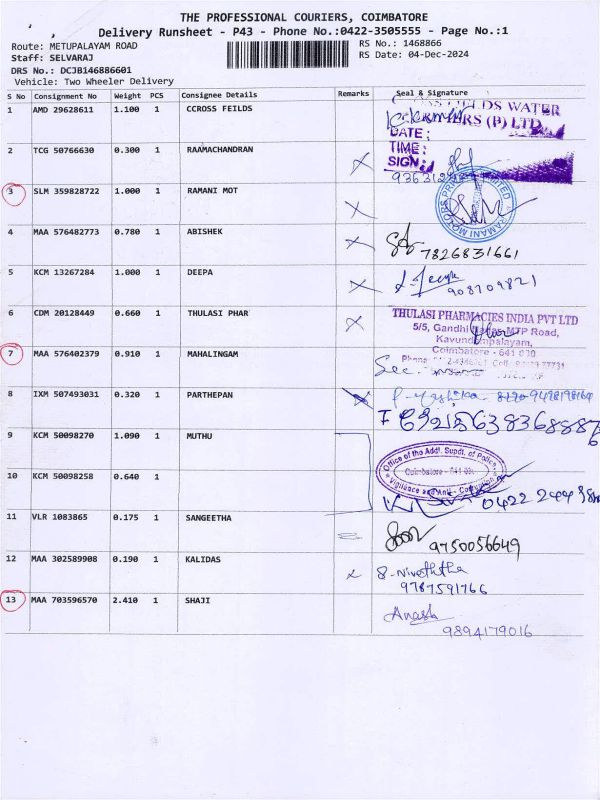 THE PROFESSIONAL COURIERS, COIMBATORE
Delivery Runsheet - P43 - Phone No.:0422-3505555 - Page No.:1
Route: METUPALAYAM ROAD
RS No.: 1468866
Staff: SELVARAJ
RS Date: 04-Dec-2024
DRS No.: DCJB146886601
Vehicle: Two Wheeler Delivery
S No Consignment No Weight PCS Consignee Details Remarks Seal & Signature
1 AMD 29628611 1.100 1 CCROSS FEILDS
FIELDS WATER
(P) LTD
DATE:
TIME:
SIGN:
2 TCG 50766630 0.300 1 RAAMACHANDRAN
3 SLM 359828722 1.000 1 RAMANI MOT
RAMANI MOTORS PRIVATE LIMITED
4 MAA 576482773 0.780 1 ABISHEK
7826831661
5 KCM 13267284 1.000 1 DEEPA
9087098 21
6 CDM 20128449 0.660 1 THULASI PHAR
THULASI PHARMACIES INDIA PVT LTD
5/5, Gandhi Nagar, MTP Road,
Kavundampalayam,
Coimbatore - 641 030
7 MAA 576402379 0.910 1 MAHALINGAM
8 IXM 507493031 0.320 1 PARTHEPAN
9498198164
6383688876
9 KCM 50098270 1.090 1 MUTHU
Office of the Addl. Supdt. of Police
Coimbatore - 641
Vigilance and Anti - Corruption
10 KCM 50098258 0.640 1
0422 244
11 VLR 1083865 0.175 1 SANGEETHA
9750056649
12 MAA 302589908 0.190 1 KALIDAS
S. Nivethitha
9787591766
13 MAA 703596570 2.410 1 SHAJI
9894179016